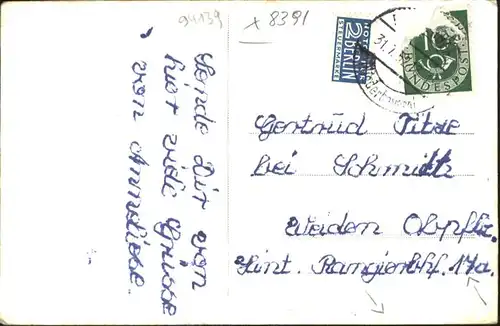 94139
x 8391
NOTOPFER
2 BERLIN
STEUERMARKE
31.7.5
10
BUNDESPOST
Sende Dir von
hier viele Grüsse
von Anneliese.
Gertrud Titze
bei Schmidt
Weiden Obpflz.
Hint. Rangierbhf. 17a.